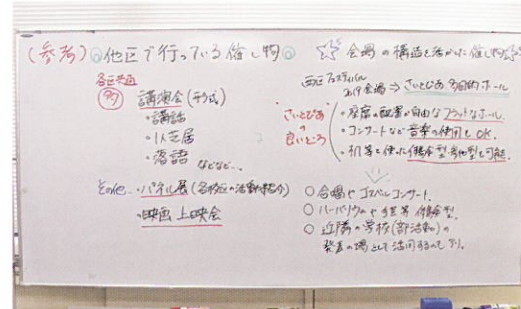 (参考)◎他区で行っている催し物◎
各区共通
多 講演会(千弓式)
・講話
・1人芝居
・落語 などなど…
その他…・パネル展(各校区の活動紹介)
・映画上映会
☆会場の構造を活かした催し物☆
西区フェスティバル
2019会場⇒さいとぴあ 多目的ホール
さいとぴあの良いところ
・座席の配置が自由なフラットなホール。
・コンサートなど音楽の使用もOK。
・机等を使った体験型・参加型も可能。
○合唱やゴスペルコンサート。
○ハーバリウムや手芸等体験型。
○近隣の学校(部活動)の
発表の場として活用するのもあり。